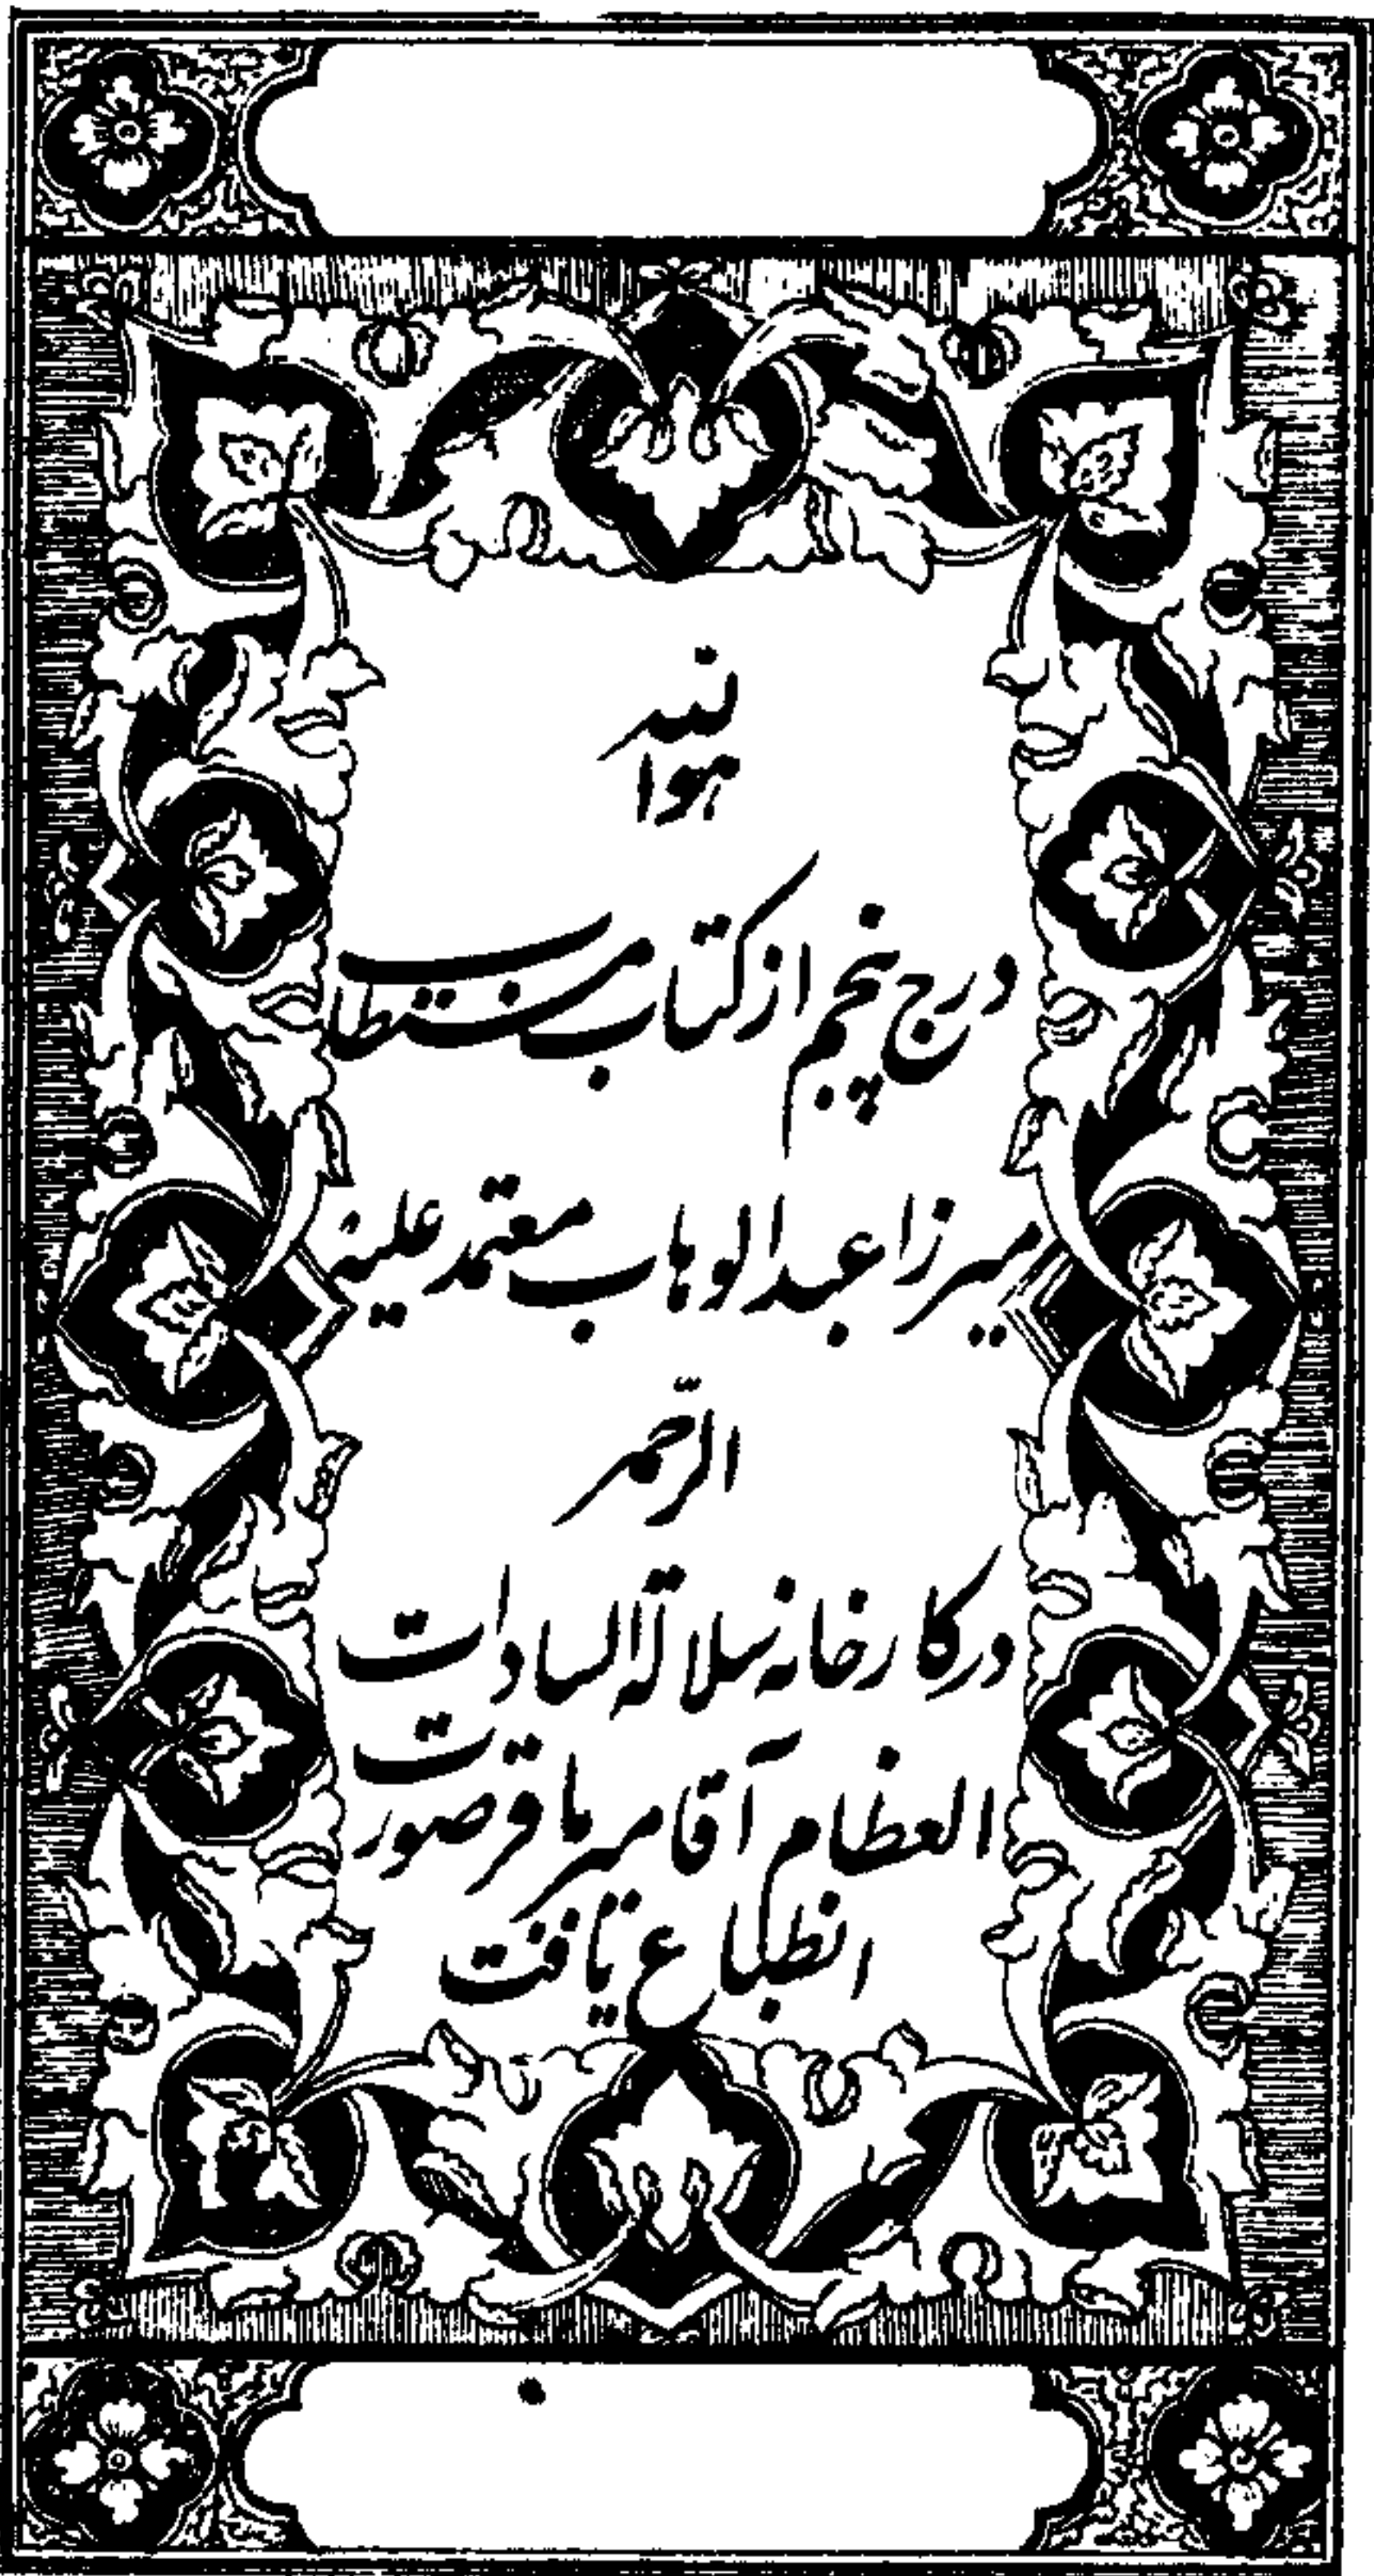 هوا
درج پنجم از کتاب مستطاب
میرزا عبدالوهاب معتمد علیه
الرحمه
در کارخانه سلالة السادات
العظام آقا میر باقر صورت
انطباع یافت